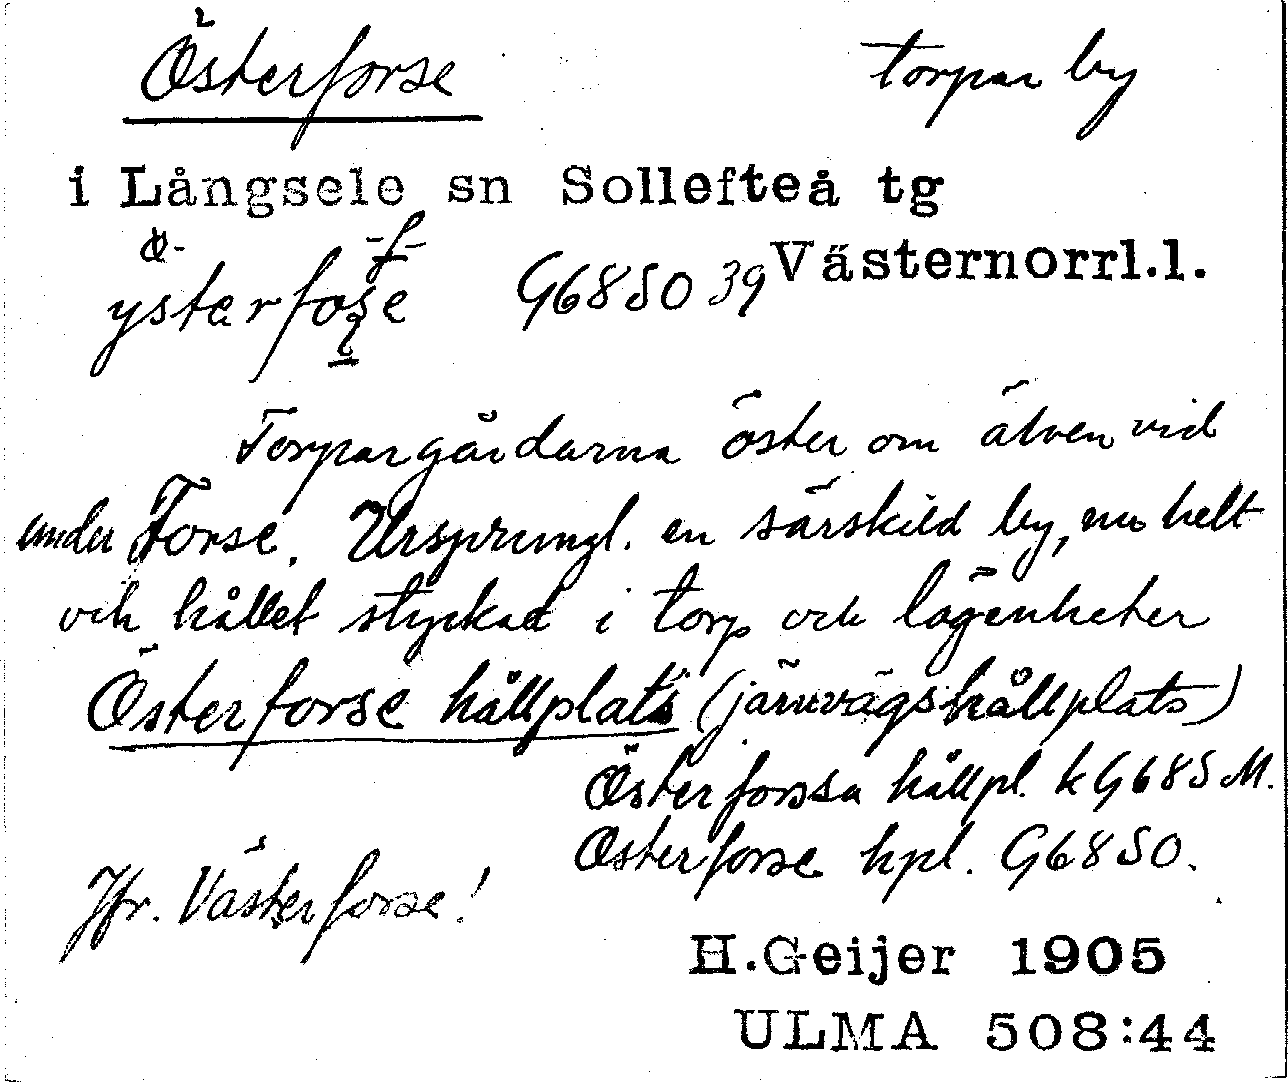 Österforse torpar by
i Långsele sn Sollefteå tg
Västernorrl.l.
ysterfose G68SO 39
Torpargårdarna öster om älven vid
under Forse. Ursprungl. en särskild by, nu helt
och hållet styckad i torp och lägenheter
Österforse hållplats (järnvägshållplats)
Österforssa hållpl. k G68S M.
Österforse hpl. G68SO.
Jfr. Västerforse!
H.Geijer 1905
ULMA 508:44